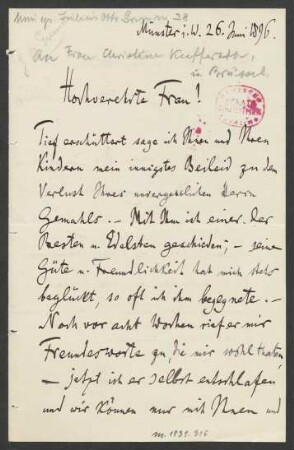 Münster i. W. 26. Juni 1896.
An Frau Christine Kufferath,
in Brüssel
Hochverehrte Frau!
Tief erschüttert sage ich Ihnen und Ihren
Kindern mein innigstes Beileid zu dem
Verlust Ihres unvergesslichen Herrn
Gemahls. – Mit Ihm ist einer der
Besten u. Edelsten geschieden; – seine
Güte u. Freundlichkeit hat mich stets
beglückt, so oft ich ihm begegnete. –
Noch vor acht Wochen rief er mir
Freundesworte zu, die mir wohl thaten
– jetzt ist er selbst entschlafen
und wir können nur mit Ihnen und
m. 1939. 816